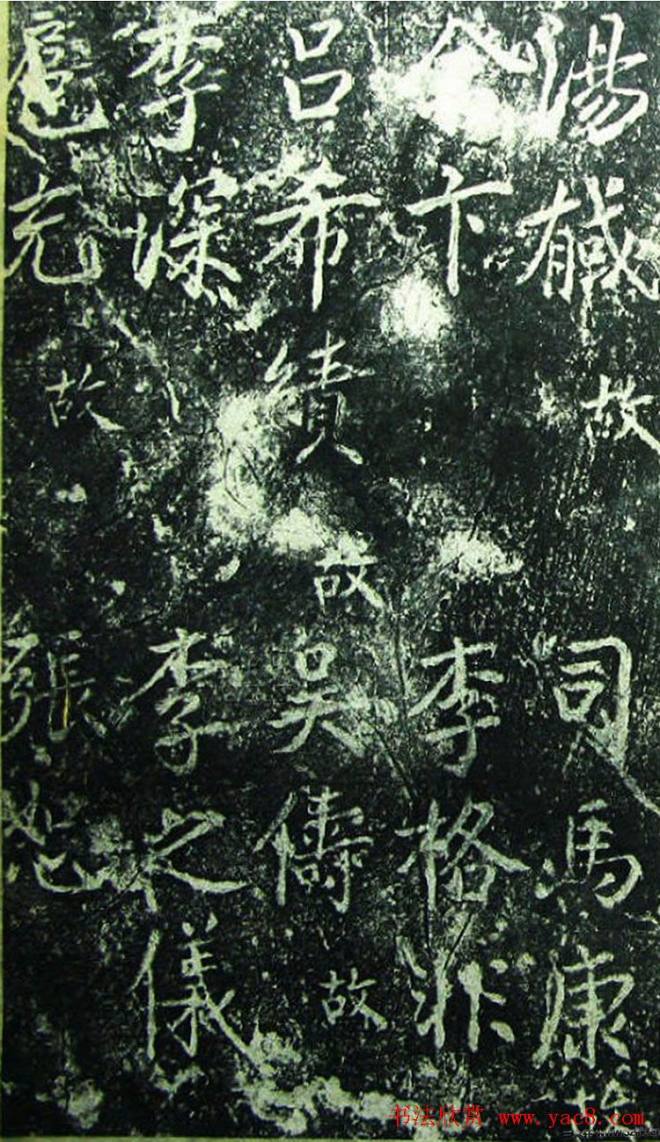 湯馘 故 司馬康 故
余卞 李格非
呂希績 故 吳儔 故
李深 李之儀
扈充 故 張恕
书法欣赏 www.yac8.com